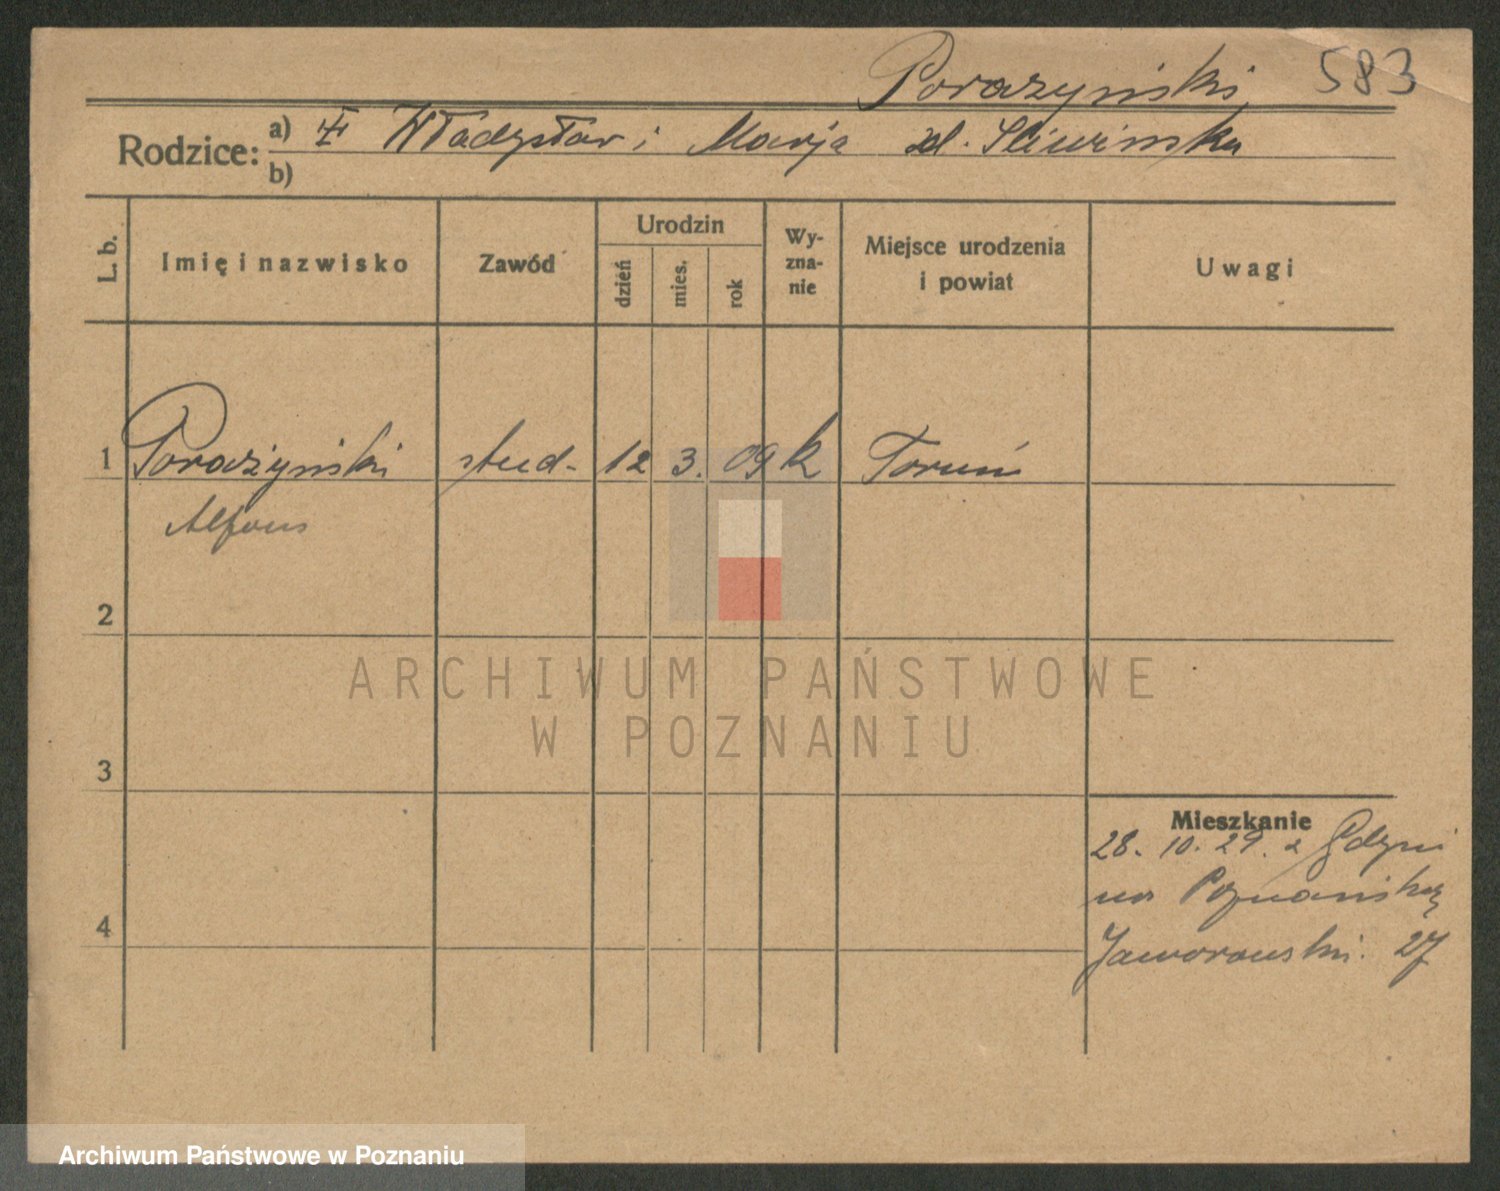 Porażyński 583
Rodzice: a) Władysław i Marja zd. Śliwińska
b)
L. b. Imię i nazwisko Zawód Urodzin dzień mies. rok Wy-zna-nie Miejsce urodzenia i powiat Uwagi
1 Porażyński stud. 12 3. 09 k Toruń
Alfons
2
ARCHIWUM PAŃSTWOWE
W POZNANIU
3
Mieszkanie
28. 10. 29. z Gdyni
na Poznańską
4
27
Archiwum Państwowe w Poznaniu